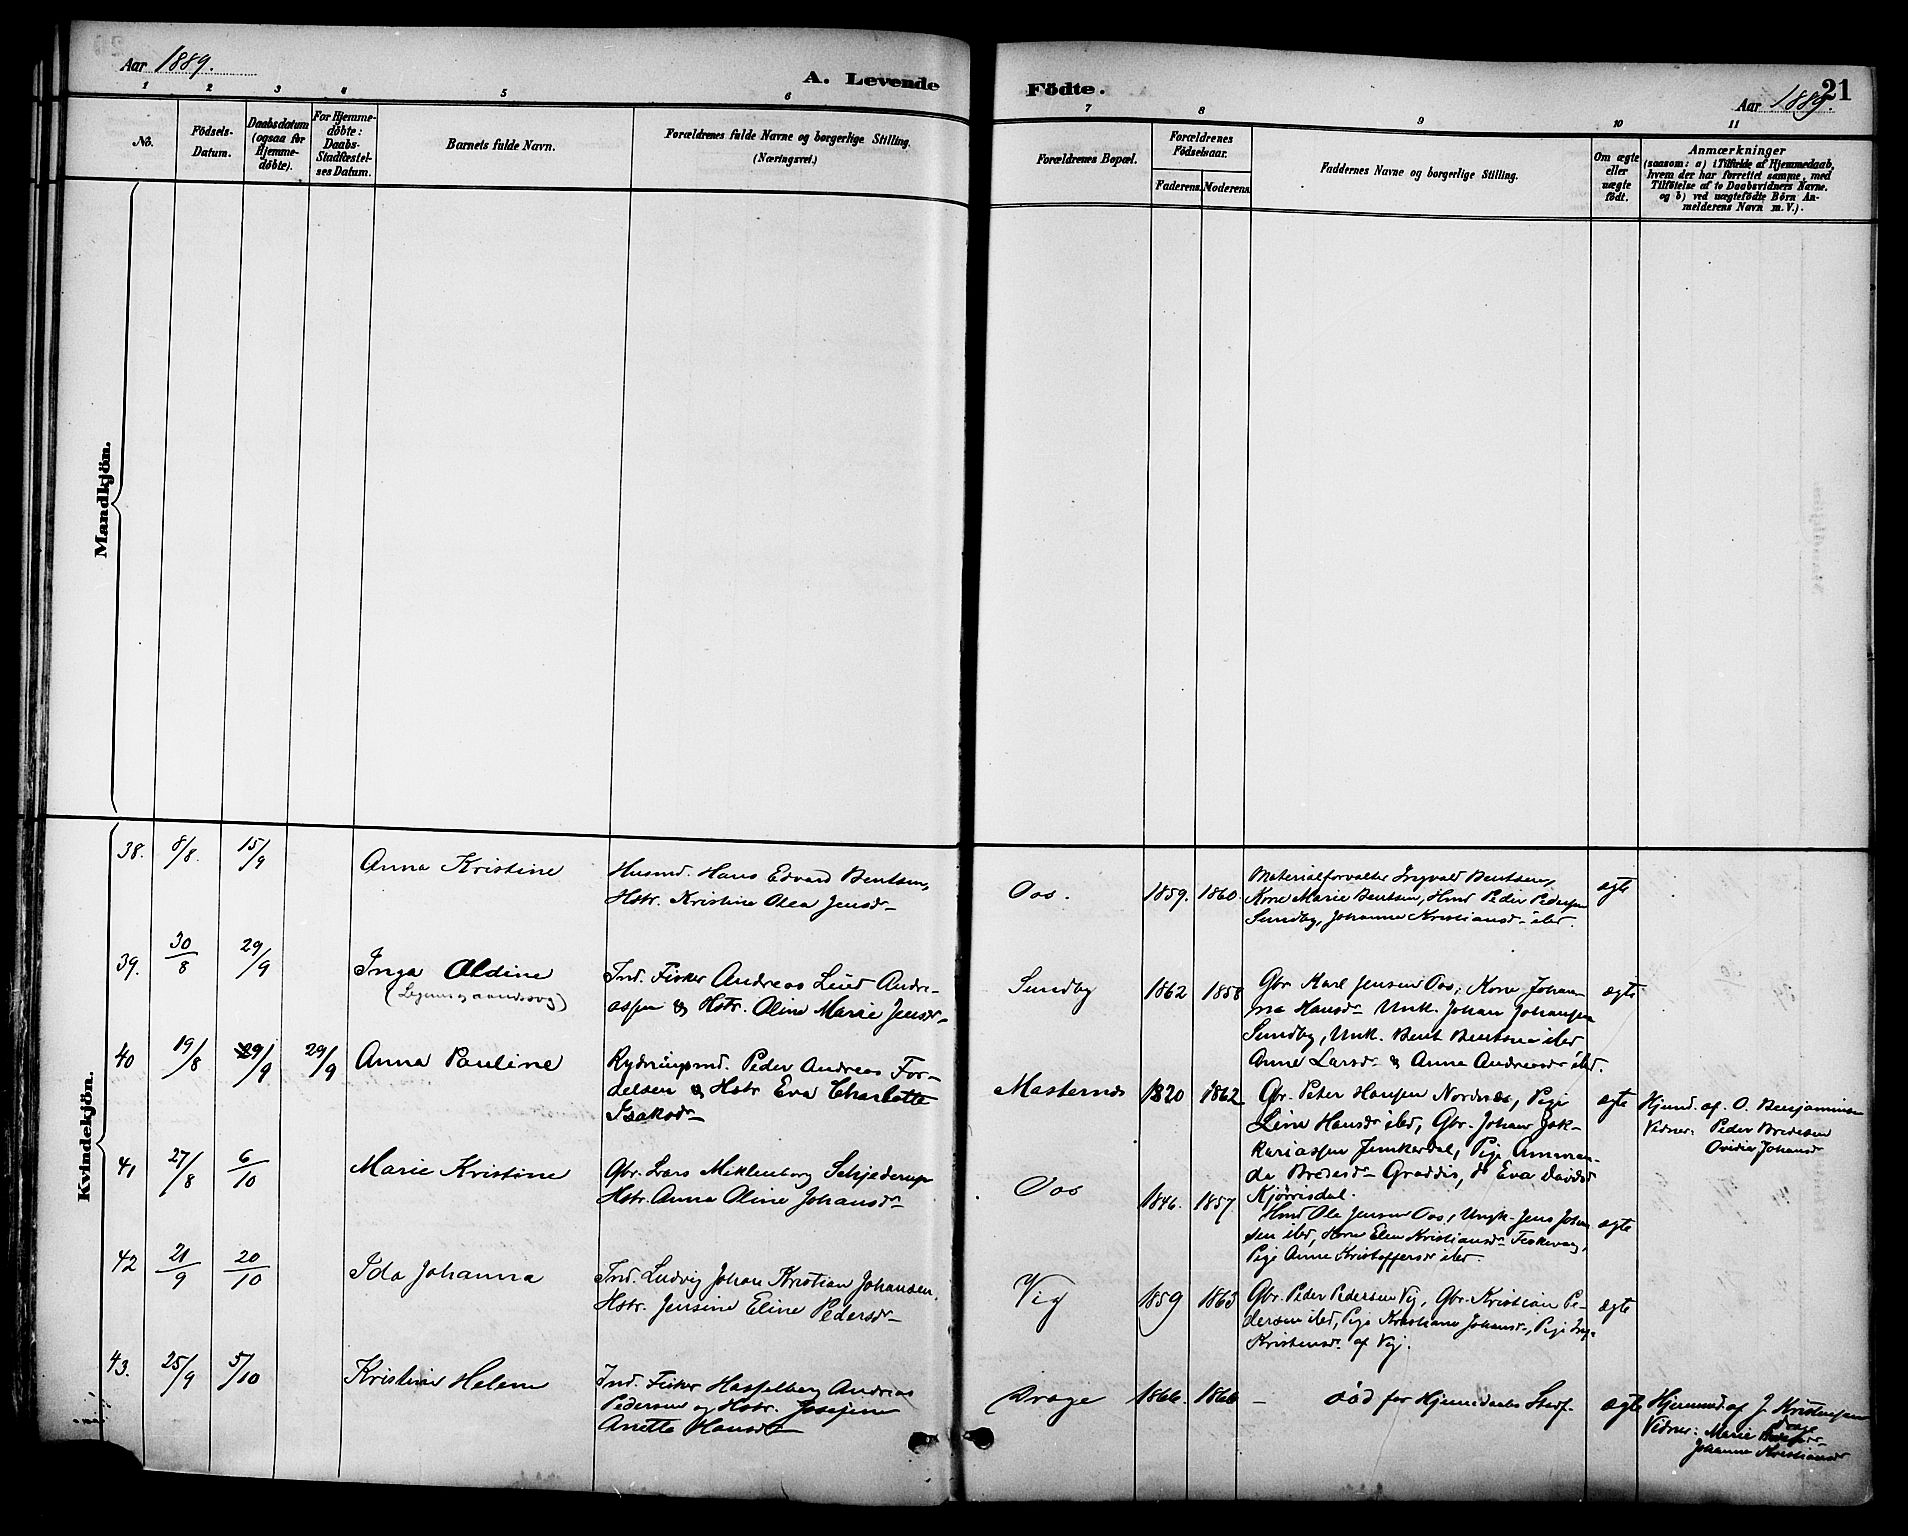 Aar 1889.
A. Levende
Födte.
21
Aar 1889.
1 2 3 4 5 6 7 8 9 10 11
No.
Födsels-
Datum.
Daabsdatum
(ogsaa for
Hjemme-
döbte).
For Hjemme-
döbte:
Daabs-
Stadfæstel-
ses Datum.
Barnets fulde Navn.
Forældrenes fulde Navne og borgerlige Stilling.
(Næringsvei.)
Forældrenes Bopæl.
Forældrenes
Födselsaar.
Faderens. Moderens.
Faddernes Navne og borgerlige Stilling.
Om ægte
eller
uægte
födt.
Anmærkninger
(saasom: a) i Tilfælde af Hjemmedaab,
hvem der har forrettet samme, med
Tilföielse af to Daabsvidners Navne.
og b) ved uægtefödte Börn An-
melderens Navn m. V.).
Mandkjön.
Kvindekjön.
38. 8/8. 15/9
Anna Kristine
Husmd. Hans Edvard Bentsen,
Hstr. Kristine Olea Jensdr
Oos. 1859. 1860.
Materialforvalter Ingvald Bentsen,
Kone Marie Bentsen, Hmd Peder Pedersen
Sundby, Johanna Kristiansdr ibd.
ægte
39. 30/8 29/9
Inga Aldine
Ind. Fisker Andreas Lund Andre-
assen & Hstr. Oline Marie Jensdr
Sundby 1862 1858
Gbr Karl Jensen Oos, Kone Johan-
na Hansdr Unk. Johan Johansen
Sundby, Unk. Bent Bentsen ibd
Anne Larsdr & Anna Andreasdr ibd.
ægte
40 19/8 29/9 29/9
Anna Pauline
Rydningsmd. Peder Andreas For-
delsen & Hstr Eva Charlotte
Isaksdr
Masternes 1820 1862
Gbr. Peter Hansen Nordnes, Pige
Lina Hansdr ibd, Gbr. Johan Jak-
kariassen Junkerdal, Pige Amman-
da Bredesdr Graddis, do Eva Davidsdr
Kjörrisdal.
ægte
Hjemd. af O. Benjaminsen
Vidner: Peder Bredesen
Ovidia Johansdr
41 27/8 6/10
Marie Kristine
Gbr. Lars Meklenborg Schjelderup
Hstr. Anna Oline Johansdr
Oos 1846. 1857.
Hmd Ole Jensen Oos, Ungk. Jens Johan-
sen ibd, Kone Elen Kristiansdr Fiskevaag,
Pige Anne Kristoffersdr ibd.
ægte
42 21/9 20/10
Ida Johanna
Ind. Ludvig Johan Kristian Johansen,
Hstr. Jensine Eline Pedersdr
Vig 1859 1863
Gbr. Peder Pedersen Vig, Gbr. Kristian Pe-
dersen ibd, Pige Kristiane Johansdr, Pige Inga
Kristensdr af Vig.
ægte
43. 25/9 5/10
Kristine Helene
Ind. Fisker Hasselberg Andreas
Pedersen og Hstr. Josefine
Anetta Hansdr
Drage 1866. 1866 —
død før Hjemmedaabs Stadf.
ægte
Hjemmd af J. Kristensen
Drage
Vidner: Marie
Johanna Kristiansdr